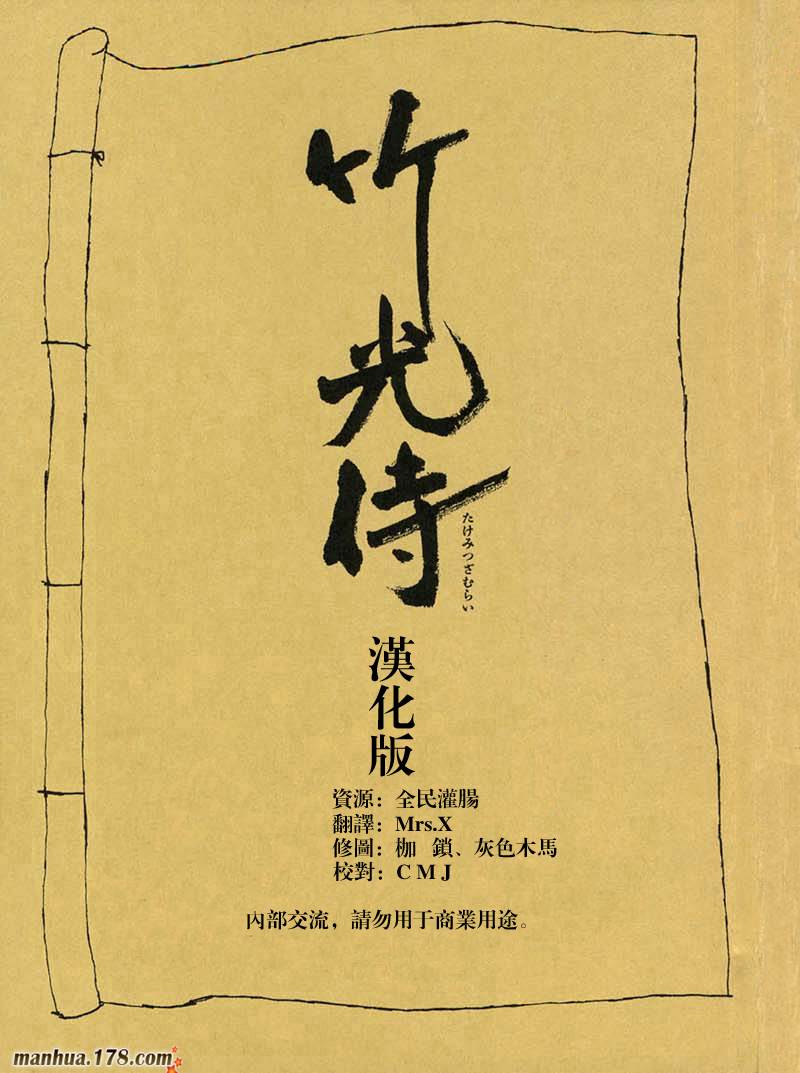 竹光侍
たけみつざむらい
漢化版
資源：全民灌腸
翻譯：Mrs.X
修圖：枷 鎖、灰色木馬
校對：C M J
內部交流，請勿用于商業用途。
manhua.178.com